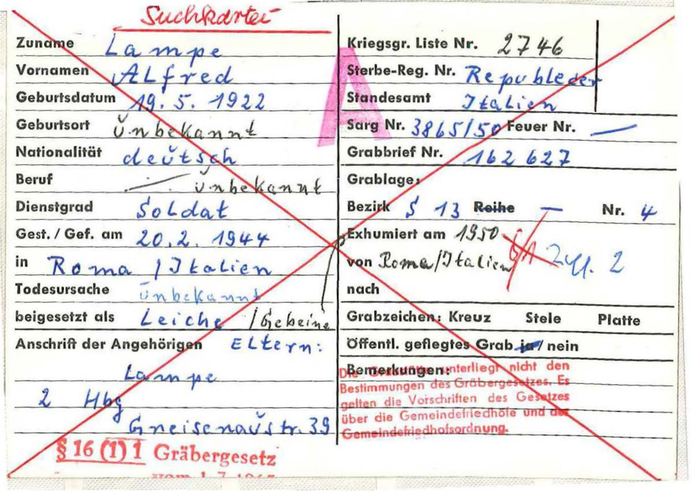 Suchkartei
Zuname Lampe
Vornamen Alfred
Geburtsdatum 19. 5. 1922
Geburtsort Unbekannt
Nationalität deutsch
Beruf — Unbekannt
Dienstgrad Soldat
Gest. / Gef. am 20. 2. 1944
in Roma / Italien
Todesursache Unbekannt
beigesetzt als Leiche / Gebeine
Anschrift der Angehörigen Eltern:
Lampe
2 Hbg
Gneisenaustr. 39
§ 16 (1) 1 Gräbergesetz
A
Kriegsgr. Liste Nr. 2746
Sterbe-Reg. Nr. Republeder
Standesamt Italien
Sarg Nr. 3865/50 Feuer Nr. —
Grabbrief Nr. 162 627
Grablage:
Bezirk S 13 Reihe — Nr. 4
Exhumiert am 1950
von Roma/Italien 2
nach
Grabzeichen: Kreuz Stele Platte
Öffentl. gepflegtes Grab ja / nein
Bemerkungen:
unterliegt nicht den
Bestimmungen des Gräbergesetzes. Es
gelten die Vorschriften des Gesetzes
über die Gemeindefriedhöfe und der
Gemeindefriedhofsordnung.